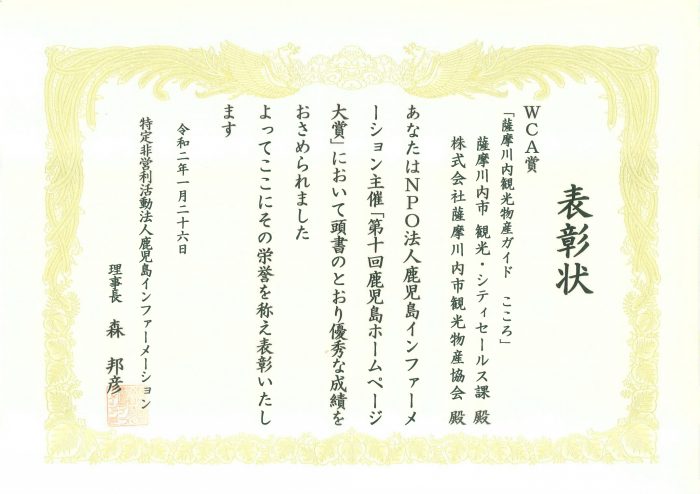 表彰状
WCA賞
「薩摩川内観光物産ガイド こころ」
薩摩川内市 観光・シティセールス課 殿
株式会社薩摩川内市観光物産協会 殿
あなたはNPO法人鹿児島インファーメ
ーション主催「第十回鹿児島ホームページ
大賞」において頭書のとおり優秀な成績を
おさめられました
よってここにその栄誉を称え表彰いたし
ます
令和二年一月二十六日
特定非営利活動法人鹿児島インファーメーション
理事長 森 邦彦